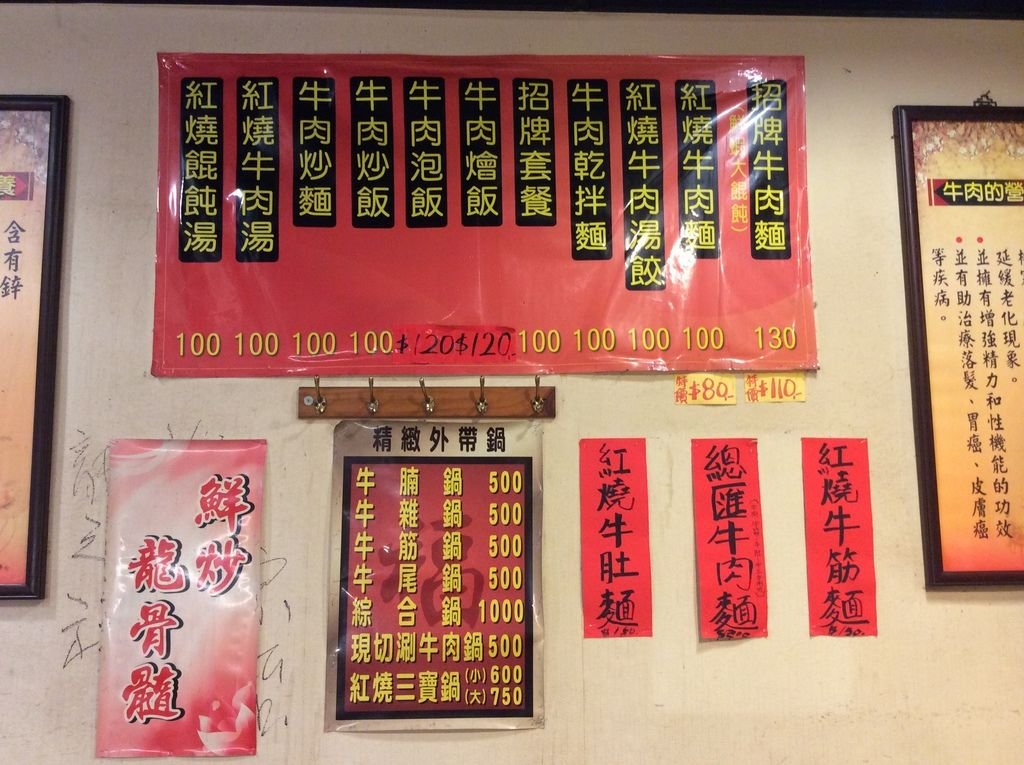 招牌牛肉麵
(鮮蝦大餛飩)
紅燒牛肉麵
紅燒牛肉湯餃
牛肉乾拌麵
招牌套餐
牛肉燴飯
牛肉泡飯
牛肉炒飯
牛肉炒麵
紅燒牛肉湯
紅燒餛飩湯
100 100 100 100 $120 $120 100 100 100 100 130
特價 $80.-
特價 $110.-
精緻外帶鍋
牛腩鍋 500
牛雜鍋 500
牛筋鍋 500
牛尾鍋 500
綜合鍋 1000
現切涮牛肉鍋 500
紅燒三寶鍋 (小) 600
(大) 750
福
鮮炒
龍骨髓
紅燒牛筋麵
總匯牛肉麵
紅燒牛肚麵
牛肉的營
延緩老化現象。
並擁有增強精力和性機能的功效
並有助治療落髮、胃癌、皮膚癌
等疾病。
養
含有鋅